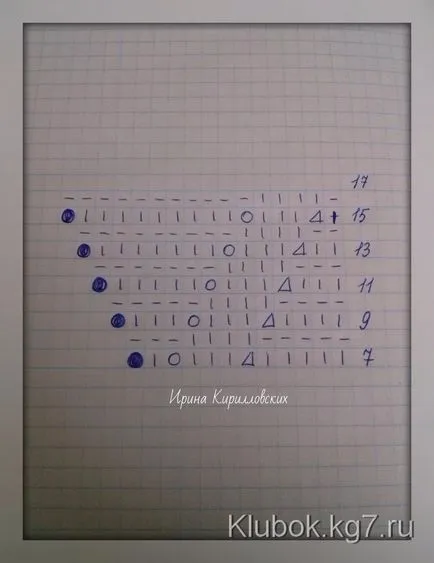 17
15
13
11
9
7
Ирина Кирилловских
Klubok.kg7.ru